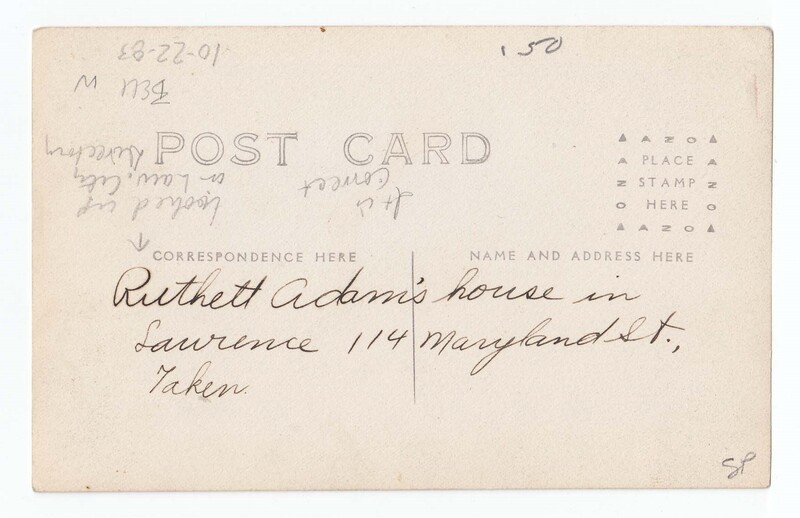 .50
10-22-83
BW
POST CARD
Looked up
in Law. City
directory
It is
correct
AZO
PLACE
STAMP
HERE
AZO
CORRESPONDENCE HERE
NAME AND ADDRESS HERE
Ruthett Adam's house in
Lawrence 114 Maryland St.,
Taken.